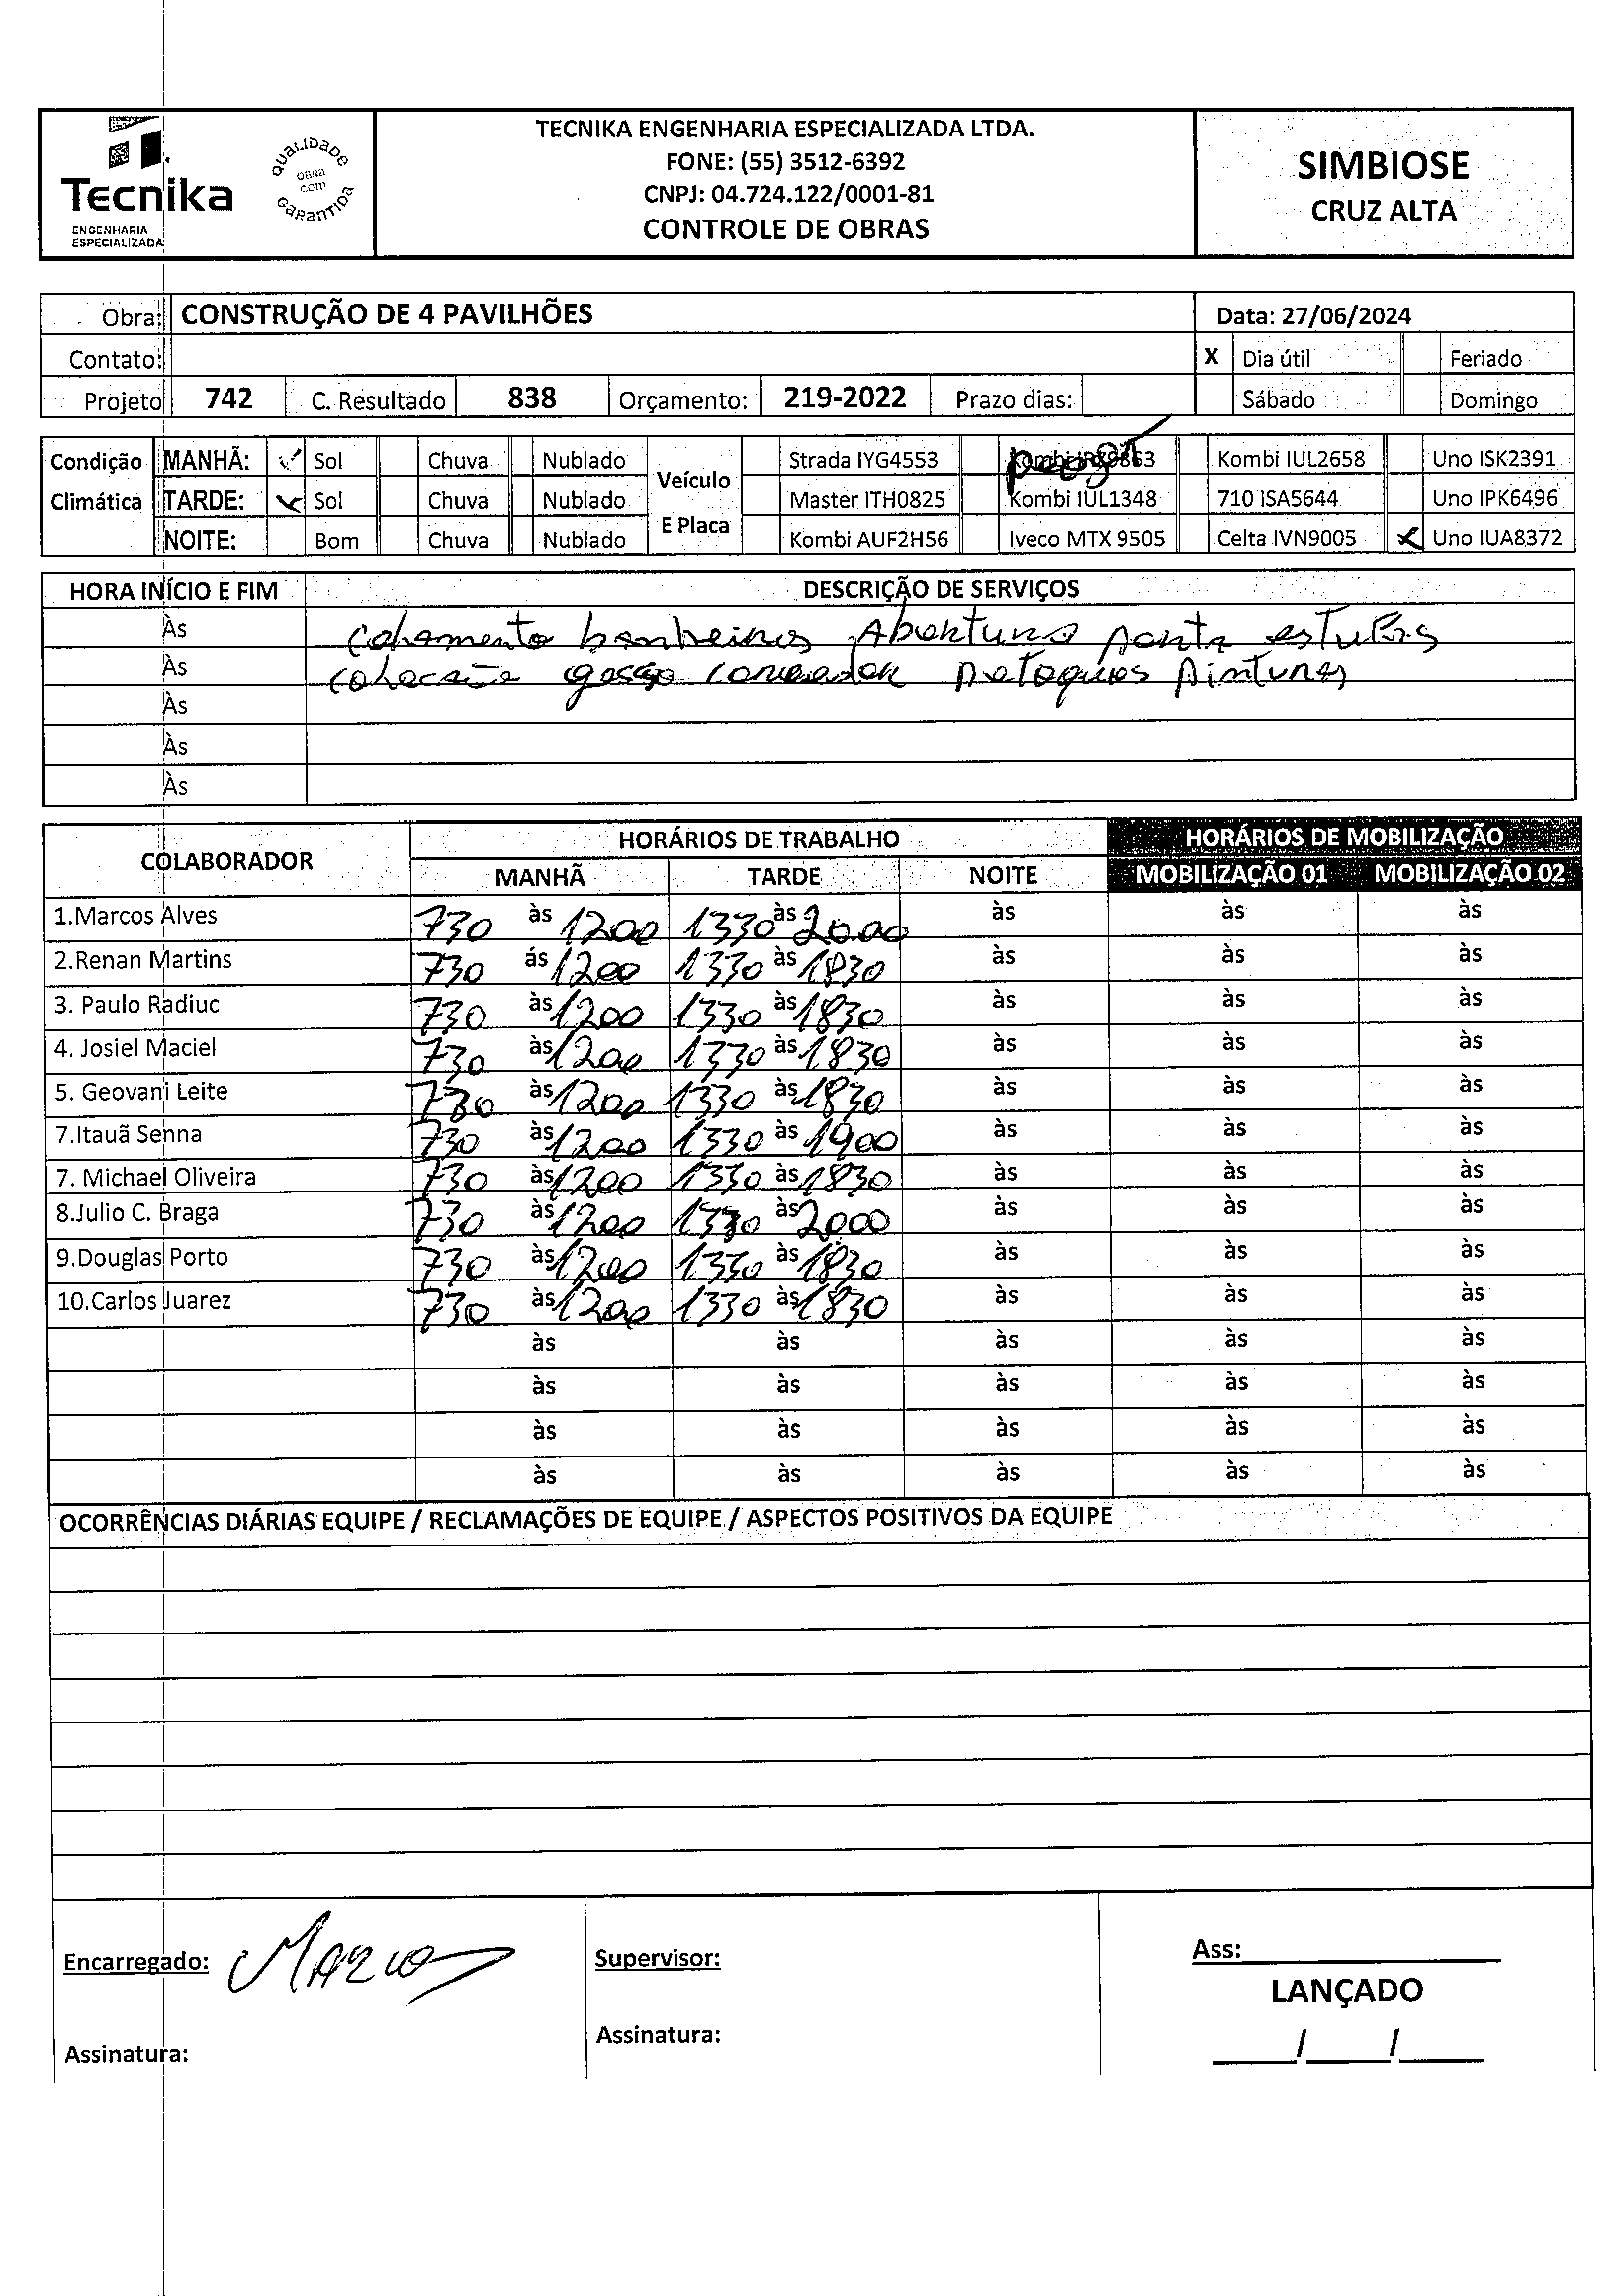 Tecnika
ENGENHARIA
ESPECIALIZADA
QUALIDADE
OBRA
COM
GARANTIDA
TECNIKA ENGENHARIA ESPECIALIZADA LTDA.
FONE: (55) 3512-6392
CNPJ: 04.724.122/0001-81
CONTROLE DE OBRAS
SIMBIOSE
CRUZ ALTA
Obra: CONSTRUÇÃO DE 4 PAVILHÕES Data: 27/06/2024
Contato: X Dia útil Feriado
Projeto 742 C. Resultado 838 Orçamento: 219-2022 Prazo dias: Sábado Domingo
Condição Climática Veículo E Placa
MANHÃ: ✓ Sol Chuva Nublado Strada IYG4553 Kombi 9863 Kombi IUL2658 Uno ISK2391
TARDE: ✓ Sol Chuva Nublado Master ITH0825 Kombi IUL1348 710 ISA5644 Uno IPK6496
NOITE: Bom Chuva Nublado Kombi AUF2H56 Iveco MTX 9505 Celta IVN9005 X Uno IUA8372
HORA INÍCIO E FIM DESCRIÇÃO DE SERVIÇOS
Às banheiros Abertura
Às gesso Pinturas
Às
Às
Às
COLABORADOR HORÁRIOS DE TRABALHO HORÁRIOS DE MOBILIZAÇÃO
MANHÃ TARDE NOITE MOBILIZAÇÃO 01 MOBILIZAÇÃO 02
1.Marcos Alves 730 às 1200 1330 às 20.00 às às às
2.Renan Martins 730 ás 1200 1330 às 1830 às às às
3. Paulo Radiuc 730 às 1200 1330 às 1830 às às às
4. Josiel Maciel 730 às 1200 1330 às 1830 às às às
5. Geovani Leite 730 às 1200 1330 às 1830 às às às
7.Itauã Senna 730 às 1200 1330 às 1900 às às às
7. Michael Oliveira 730 às 1200 1330 às 1830 às às às
8.Julio C. Braga 730 às 1200 1330 às 2000 às às às
9.Douglas Porto 730 às 1200 1330 às 1830 às às às
10.Carlos Juarez 730 às 1200 1330 às 1830 às às às
às às às às às
às às às às às
às às às às às
às às às às às
OCORRÊNCIAS DIÁRIAS EQUIPE / RECLAMAÇÕES DE EQUIPE / ASPECTOS POSITIVOS DA EQUIPE
Encarregado: Marcos Supervisor: Ass:
LANÇADO
Assinatura: Assinatura: / /